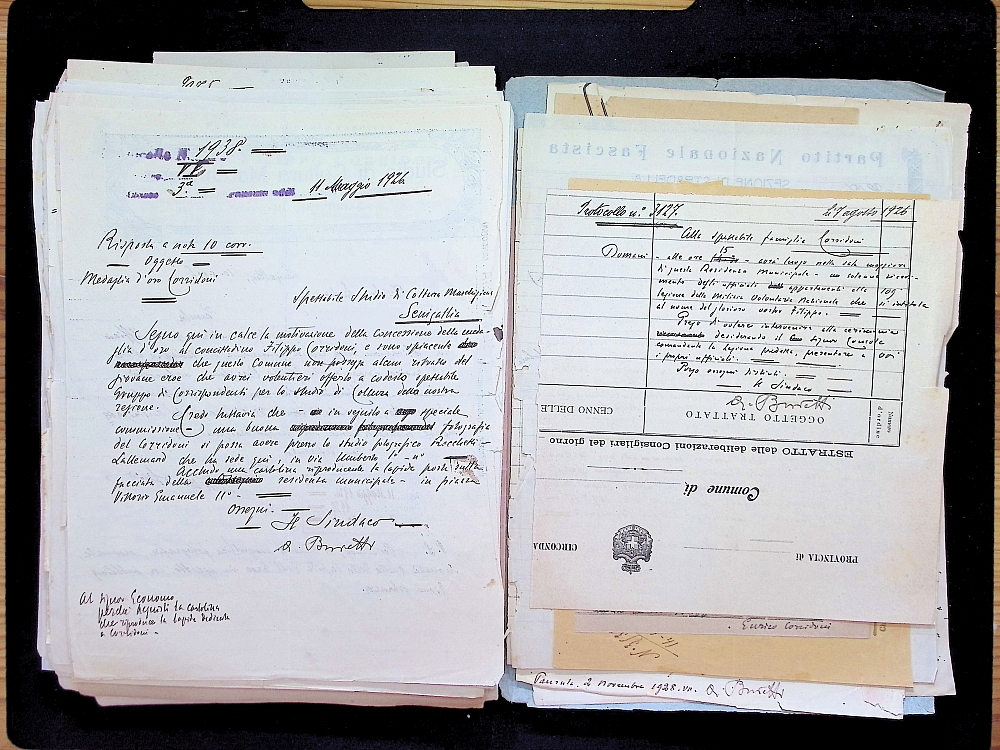 1938.
VI
3ª
11 Maggio 1926
Risposta a nota 10 corr.
Oggetto
Medaglia d'oro Corridoni
Spettabile Studio di Coltura Marchigiana
Senigallia
Segno qui in calce la motivazione della concessione della meda-
glia d'oro al concittadino Filippo Corridoni, e sono spiacente
che questo Comune non possegga alcun ritratto del
giovane eroe che avrei volentieri offerto a codesto spettabile
Gruppo di Corrispondenti per lo studio di Coltura della nostra
regione.
Credo tuttavia che - in seguito a speciale
commissione - una buona fotografia
del Corridoni si possa avere presso lo studio fotografico
Lallemand che ha sede qui, in via Umberto Iº - nº
Accludo una cartolina riproducente la lapide posta sulla
facciata della residenza municipale - in piazza
Vittorio Emanuele IIº -
Ossequi.
Il Sindaco
Al Signor Economo,
perché acquisti la cartolina
che riproduce la lapide dedicata
a Corridoni -
Partito Nazionale Fascista
SEZIONE DI STRADELLA
Protocollo nº 3127.
li 7 agosto 1926
Alla spettabile famiglia Corridoni
Domani - alle ore 15 - avrà luogo nella sala maggiore
di questa Residenza Municipale - un solenne ricevi-
mento degli ufficiali appartenenti alla 109ª
legione della Milizia Volontaria Nazionale che si intitola
al nome del glorioso vostro Filippo.
Prego di volervi intervenire alla cerimonia
desiderando il Signor Console
comandante la legione predetta, presentare a voi
i propri ufficiali.
Porgo ossequi distinti.
Il Sindaco
Numero d'ordine
OGGETTO TRATTATO
CENNO DELLE
ESTRATTO delle deliberazioni Consigliari del giorno
Comune di
PROVINCIA di
CIRCONDA
Enrico Corridoni
Pausula, 2 Novembre 1928. VII.